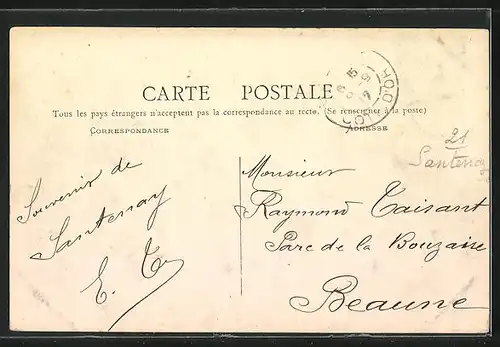 CARTE POSTALE
Tous les pays étrangers n'acceptent pas la correspondance au recto. (Se renseigner à la poste)
CORRESPONDANCE
ADRESSE
CÔTE D'OR
21
Santenay
Souvenir de
Santenay
E. T
Monsieur
Raymond Taisant
Parc de la Bouzaise
Beaune